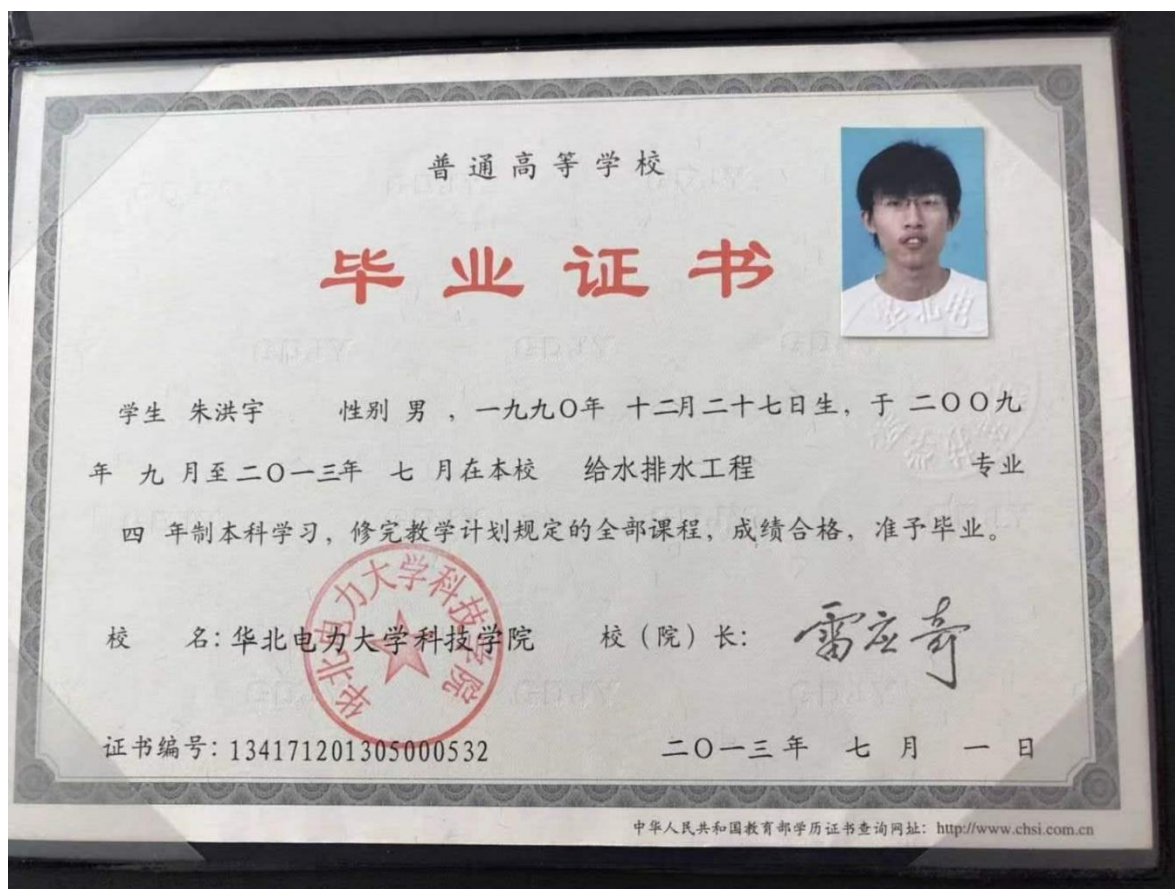 普通高等学校
毕业证书
学生 朱洪宇 性别 男 ，一九九〇年 十二月二十七日生，于 二〇〇九
年 九 月至二〇一三年 七 月在本校 给水排水工程 专业
四 年制本科学习，修完教学计划规定的全部课程，成绩合格，准予毕业。
华北电力大学科技学院
校 名：华北电力大学科技学院 校（院）长： 雷应奇
证书编号：134171201305000532 二〇一三年 七 月 一 日
中华人民共和国教育部学历证书查询网址：http://www.chsi.com.cn